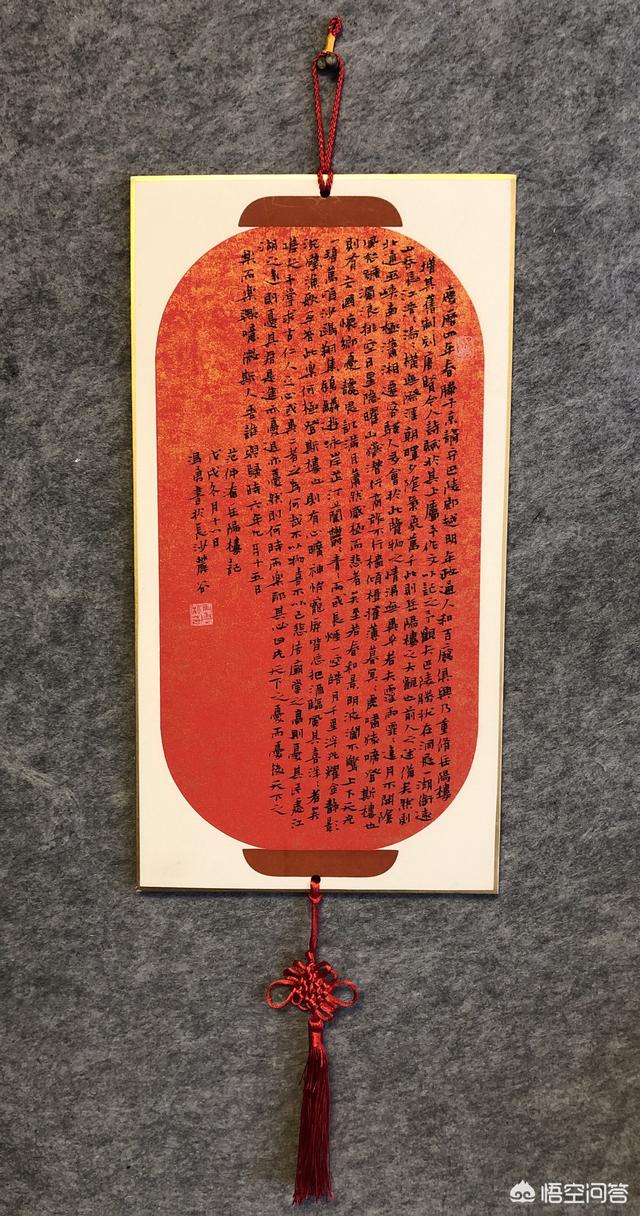 慶曆四年春滕子京謫守巴陵郡越明年政通人和百廢俱興乃重脩岳陽樓
增其舊制刻唐賢今人詩賦於其上屬予作文以記之予觀夫巴陵勝狀在洞庭一湖銜遠
山吞長江浩〻湯〻橫無際涯朝暉夕陰氣象萬千此則岳陽樓之大觀也前人之述備矣然則
北通巫峽南極瀟湘遷客騷人多會於此覽物之情得無異乎若夫霪雨霏〻連月不開陰
風怒號濁浪排空日星隱曜山嶽潛行商旅不行檣傾楫摧薄暮冥〻虎嘯猿啼登斯樓也
則有去國懷鄉憂讒畏譏滿目蕭然感極而悲者矣至若春和景明波瀾不驚上下天光
一碧萬頃沙鷗翔集錦鱗游泳岸芷汀蘭鬱〻青〻而或長煙一空皓月千里浮光耀金靜影
沉璧漁歌互答此樂何極登斯樓也則有心曠神怡寵辱皆忘把酒臨風其喜洋〻者矣
嗟夫予嘗求古仁人之心或異二者之為何哉不以物喜不以己悲居廟堂之高則憂其民處江
湖之遠則憂其君是進亦憂退亦憂然則何時而樂耶其必曰先天下之憂而憂後天下之
樂而樂歟噫微斯人吾誰與歸時六年九月十五日
范仲淹岳陽樓記
戊戌冬月十八日
書於長沙麓谷
悟空问答